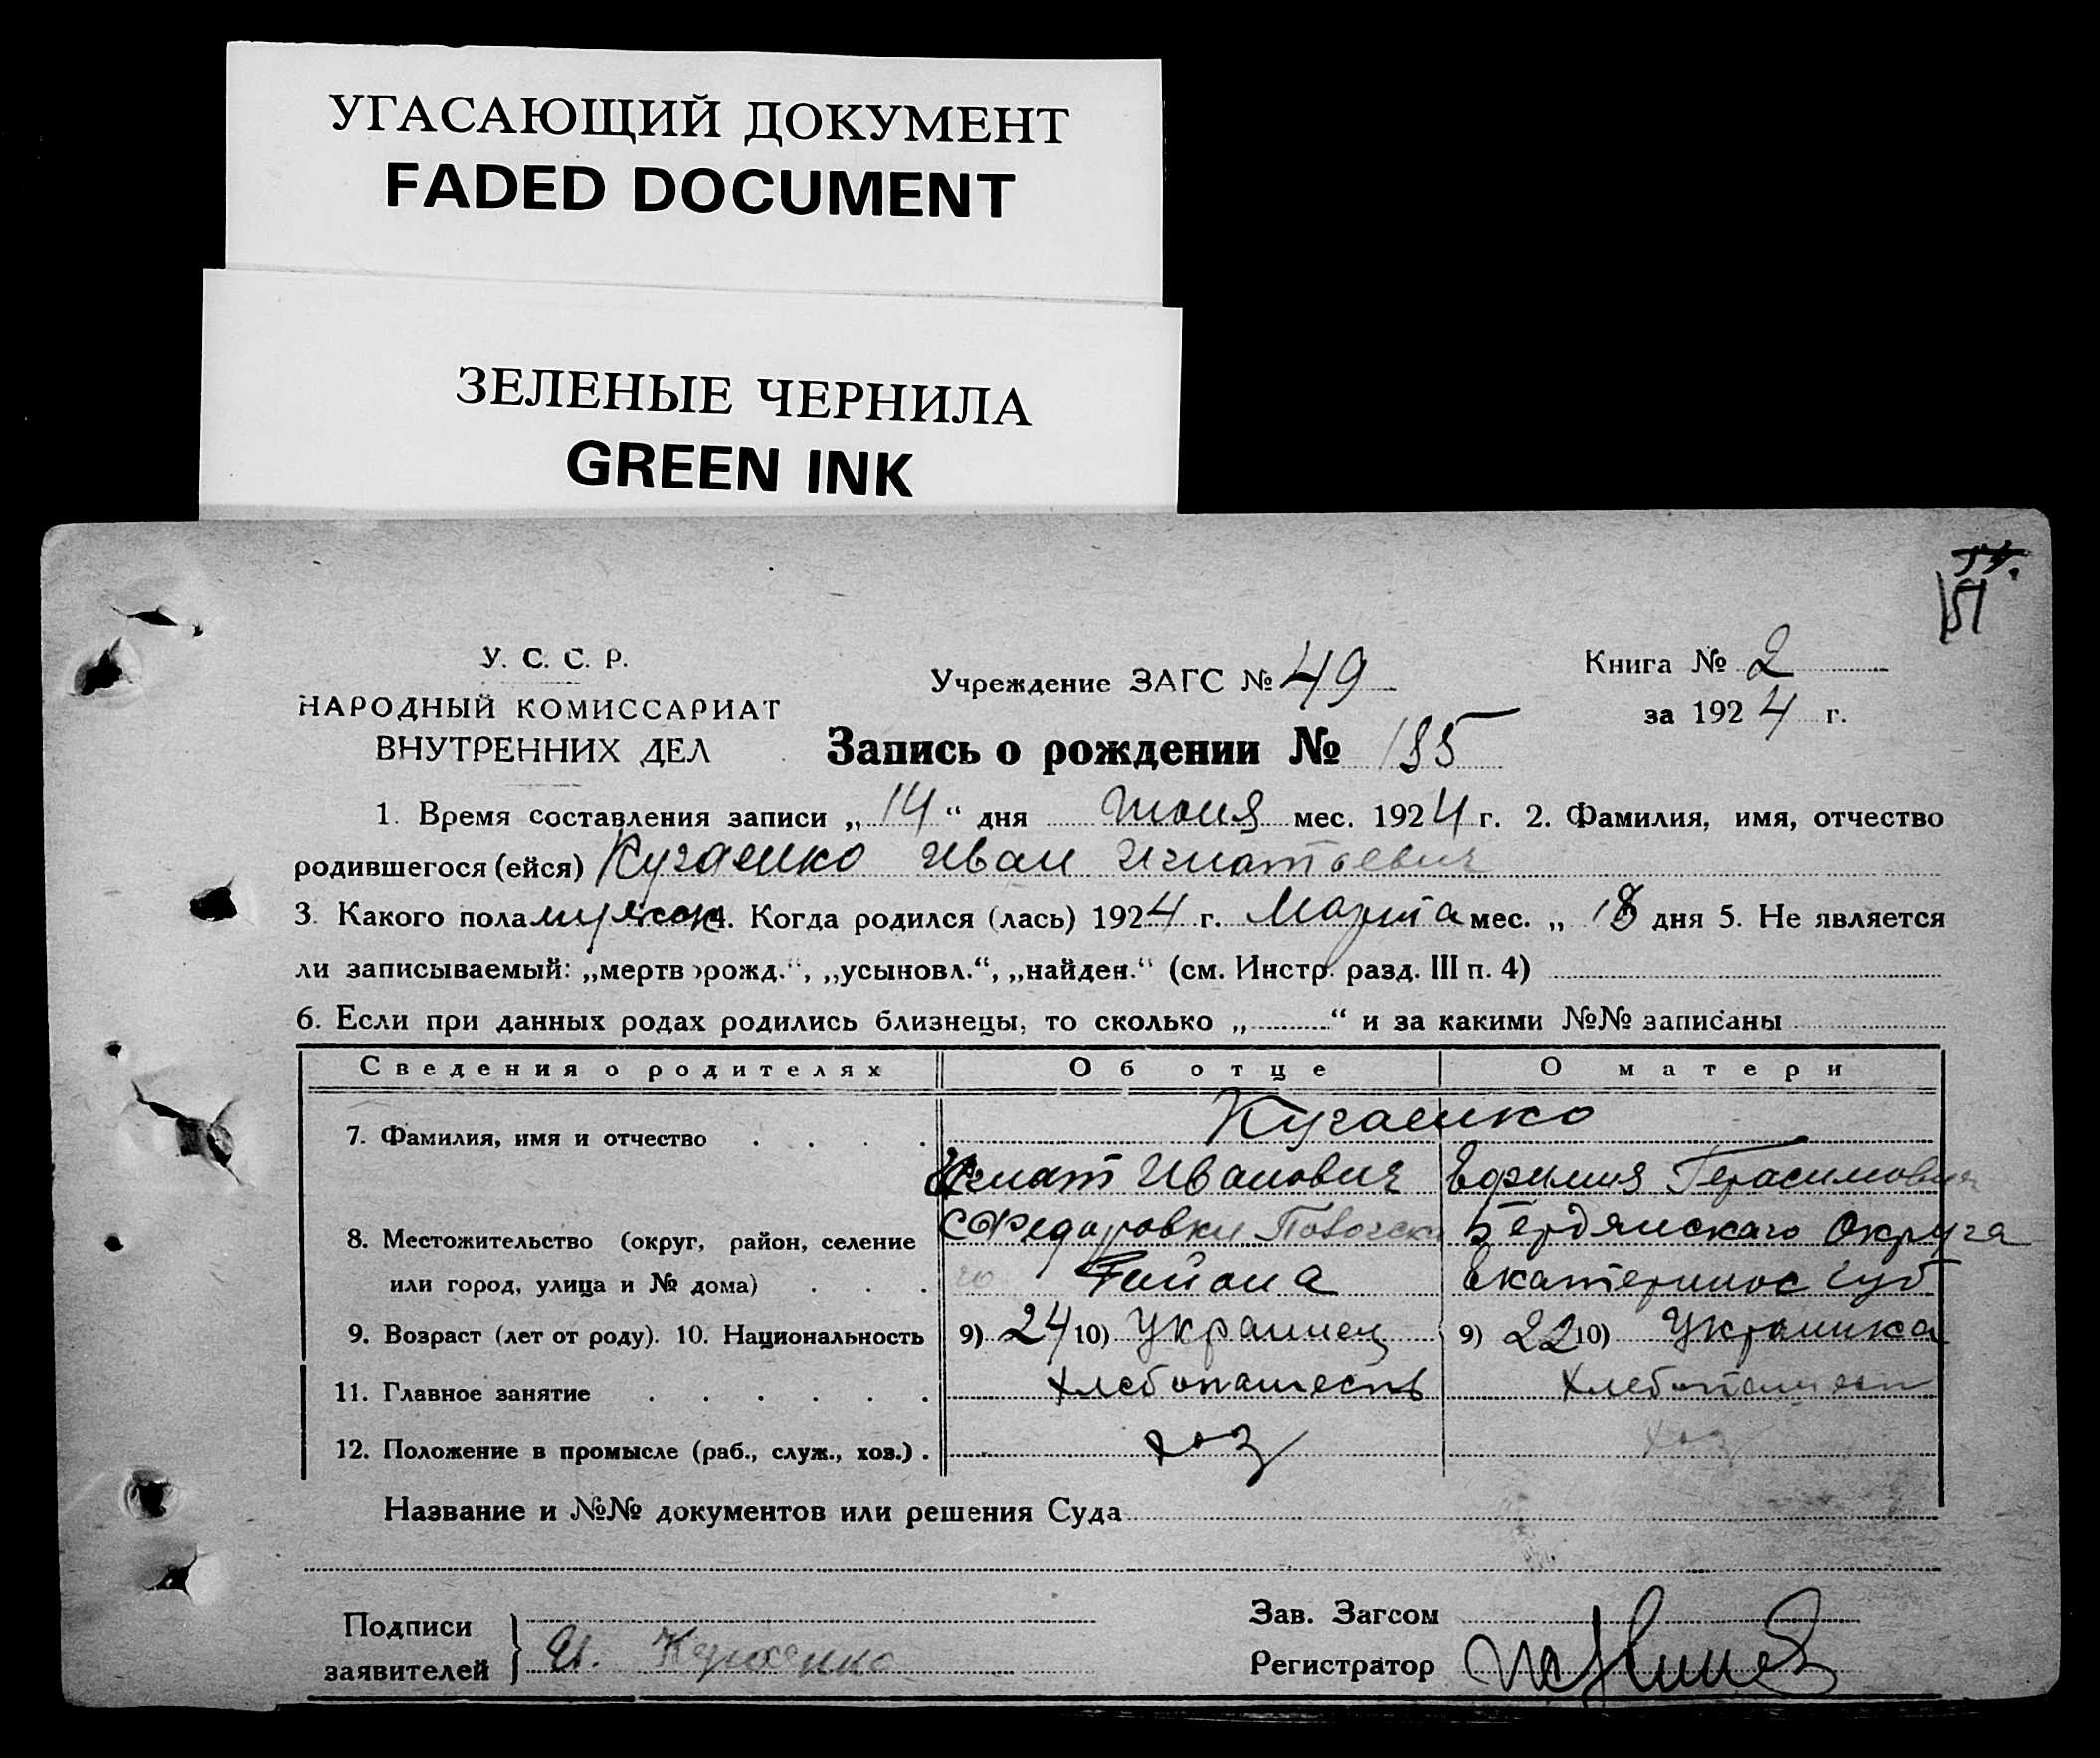 УГАСАЮЩИЙ ДОКУМЕНТ
FADED DOCUMENT
ЗЕЛЕНЫЕ ЧЕРНИЛА
GREEN INK
51
У. С. С. Р.
НАРОДНЫЙ КОМИССАРИАТ
ВНУТРЕННИХ ДЕЛ
Учреждение ЗАГС № 49
Книга № 2
за 1924 г.
Запись о рождении № 135
1. Время составления записи „14“ дня июня мес. 1924 г. 2. Фамилия, имя, отчество
родившегося (ейся) Кугаенко Иван Игнатьевич
3. Какого пола мужск 4. Когда родился (лась) 1924 г. Марта мес. „ 18 дня 5. Не является
ли записываемый: „мертворожд.“, „усыновл.“, „найден.“ (см. Инстр. разд. III п. 4)
6. Если при данных родах родились близнецы, то сколько „ “ и за какими №№ записаны
Сведения о родителях Об отце О матери
7. Фамилия, имя и отчество Кугаенко
Игнат Иванович Ефимия Герасимович
8. Местожительство (округ, район, селение С Федоровки Бердянскаго Округа
или город, улица и № дома) го Района Екатеринос губ
9. Возраст (лет от роду). 10. Национальность 9) 24 10) Украинец 9) 22 10) Украинка
11. Главное занятие хлебопашесть хлебопашест
12. Положение в промысле (раб., служ., хоз.) хоз хоз
Название и №№ документов или решения Суда
Подписи
заявителей И. Кугаенко
Зав. Загсом
Регистратор